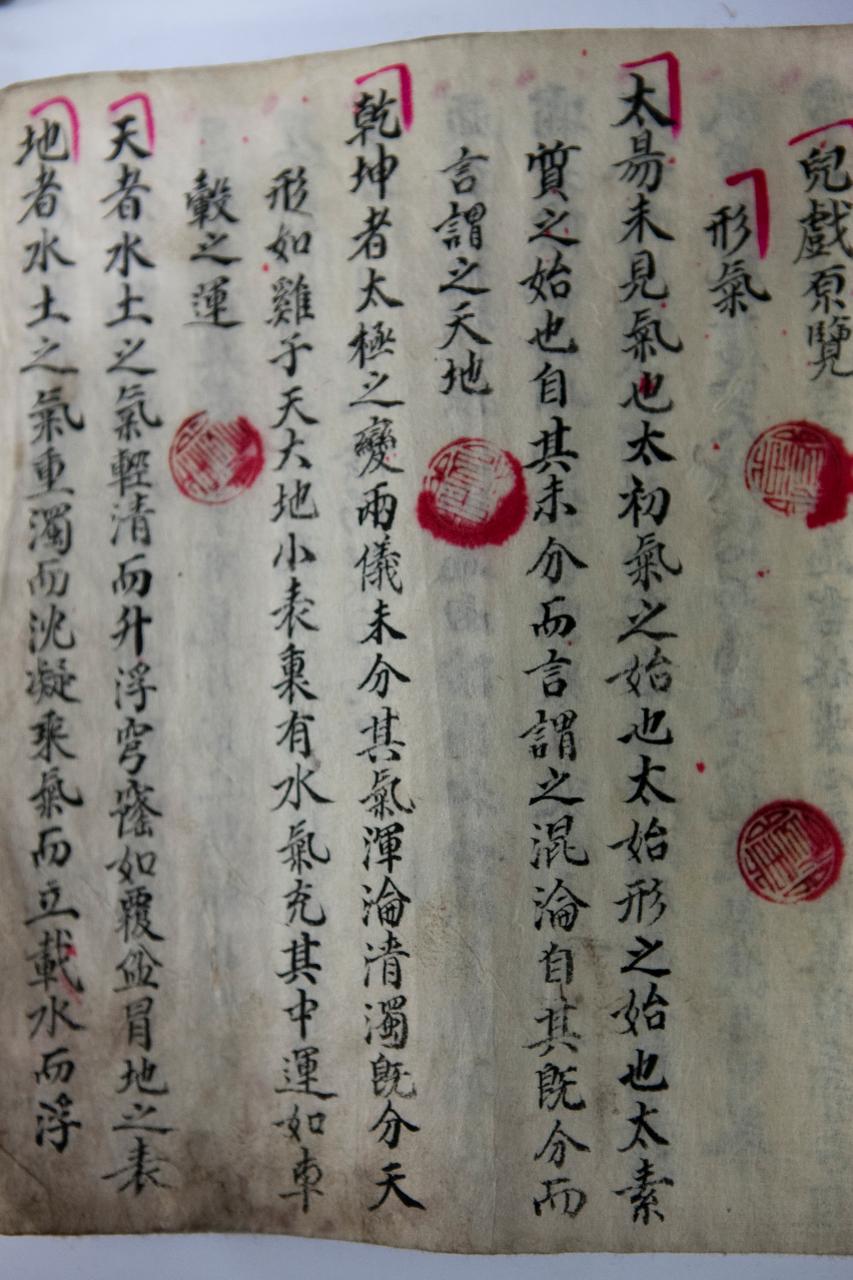 兒戲原覽
形氣
太昜未見氣也太初氣之始也太始形之始也太素
質之始也自其未分而言謂之混淪自其既分而
言謂之天地
乾坤者太極之變兩儀未分其氣渾淪清濁既分天
形如雞子天大地小表裏有水氣充其中運如車
轂之運
天者水土之氣輕清而升浮穹窿如覆盆冒地之表
地者水土之氣重濁而沈凝乘氣而立載水而浮